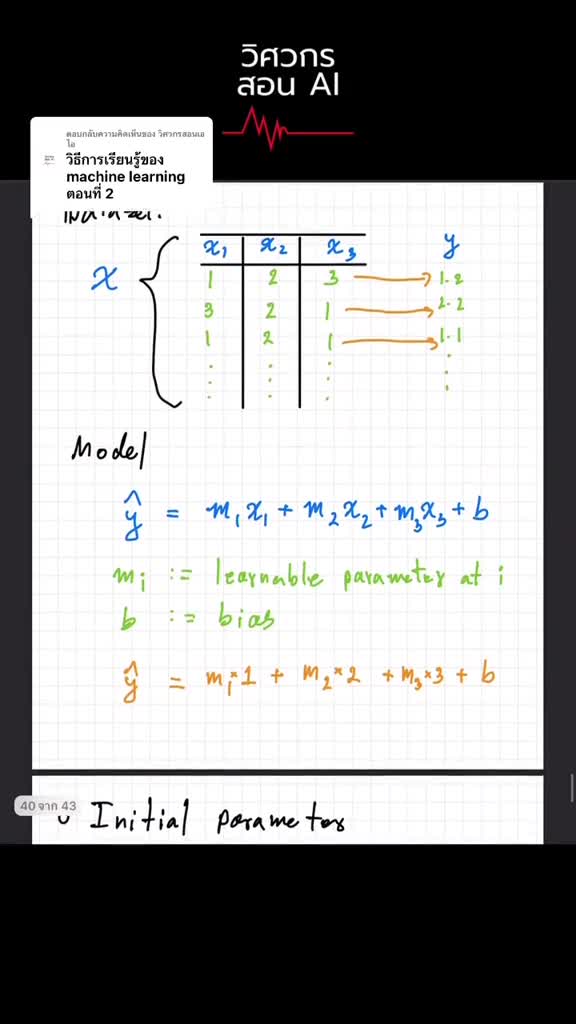 วิศวกร
สอน AI
ตอบกลับความคิดเห็นของ วิศวกรสอนเอ
ไอ
วิธีการเรียนรู้ของ
machine learning
ตอนที่ 2
x₁ x₂ x₃ y
x
1 2 3 → 1.2
3 2 1 → 2.2
1 2 1 → 1.1
Model
ŷ = m₁x₁ + m₂x₂ + m₃x₃ + b
mᵢ := learnable parameter at i
b := bias
ŷ = m₁*1 + m₂*2 + m₃*3 + b
40 จาก 43
Initial parameter